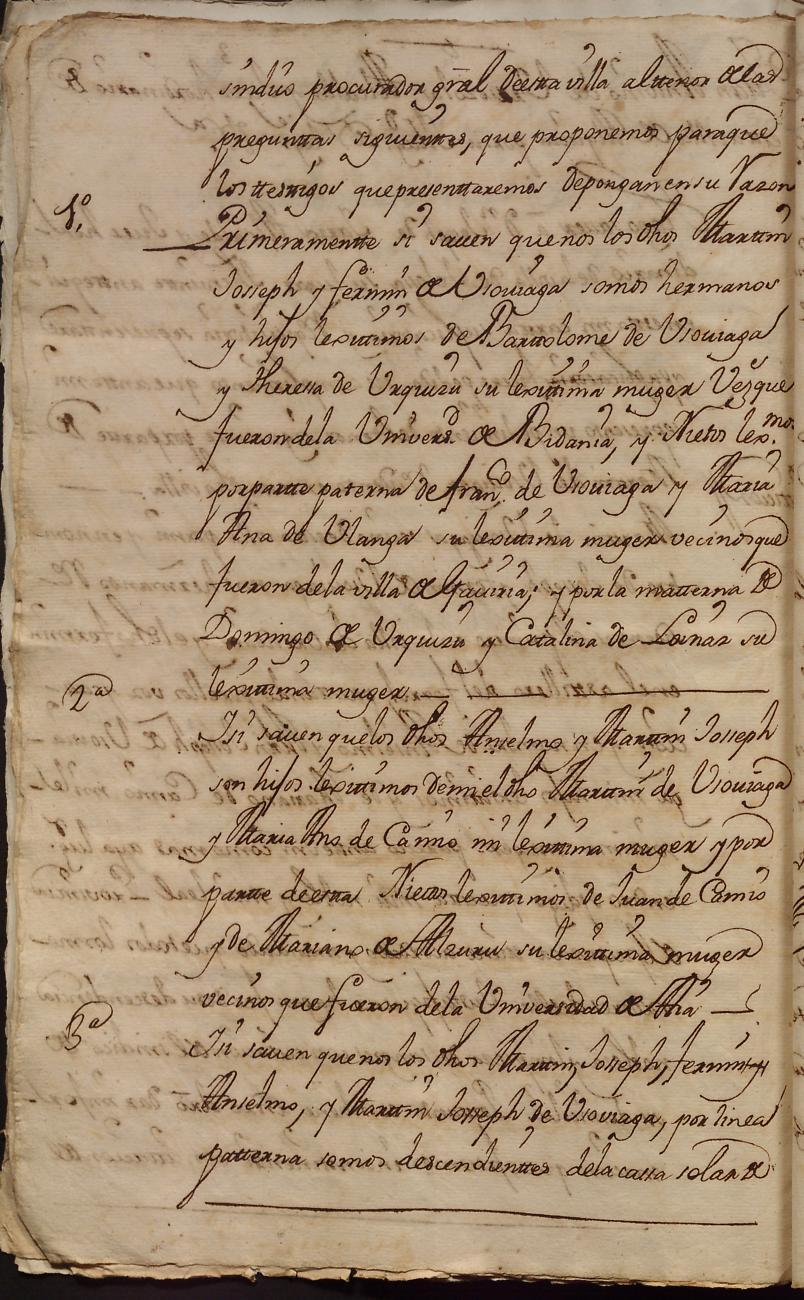 sindico procurador gral deesta villa altenor delas
pregunttas siguienttes, que proponemos paraque
los ttesttigos quepresenttaremos deponganensu Razon
1º Primeramentte si sauen quenos los dhos Marttin
Joseph y fermin de Usouiaga somos hermanos
y hijos lexittimos de Barttolome de Usouiaga
y Theressa de Urquizu su lexittima muger Vezs que
fueron dela Univerd. de Bidania, y Nietos lexmos
porpartte paterna de franco. de Usouiaga y Maria
Ana de Olanga su lexittima muger vecinos que
fueron dela villa de Gauiria; y por la matterna de
Domingo de Urquizu y Catalina de Loinaz su
lexittima muger
2ª Isi sauen quelos dhos Anselmo y Marttin Josseph
son hijos lexittimos demi el dho Marttin de Usouiaga
y Maria Ana de Camio mi lexittima muger y por
partte deesta Niettos lexittimos de Juan de Camio
y de Mariana de Alzuru su lexittima muger
vecinos que fueron dela Universidad de Ahia
3ª Isi sauen quenos los dhos Marttin, Josseph, fermin, y
Anselmo, y Marttin Josseph de Usouiaga, por linea
patterna somos descendienttes dela cassa solar de